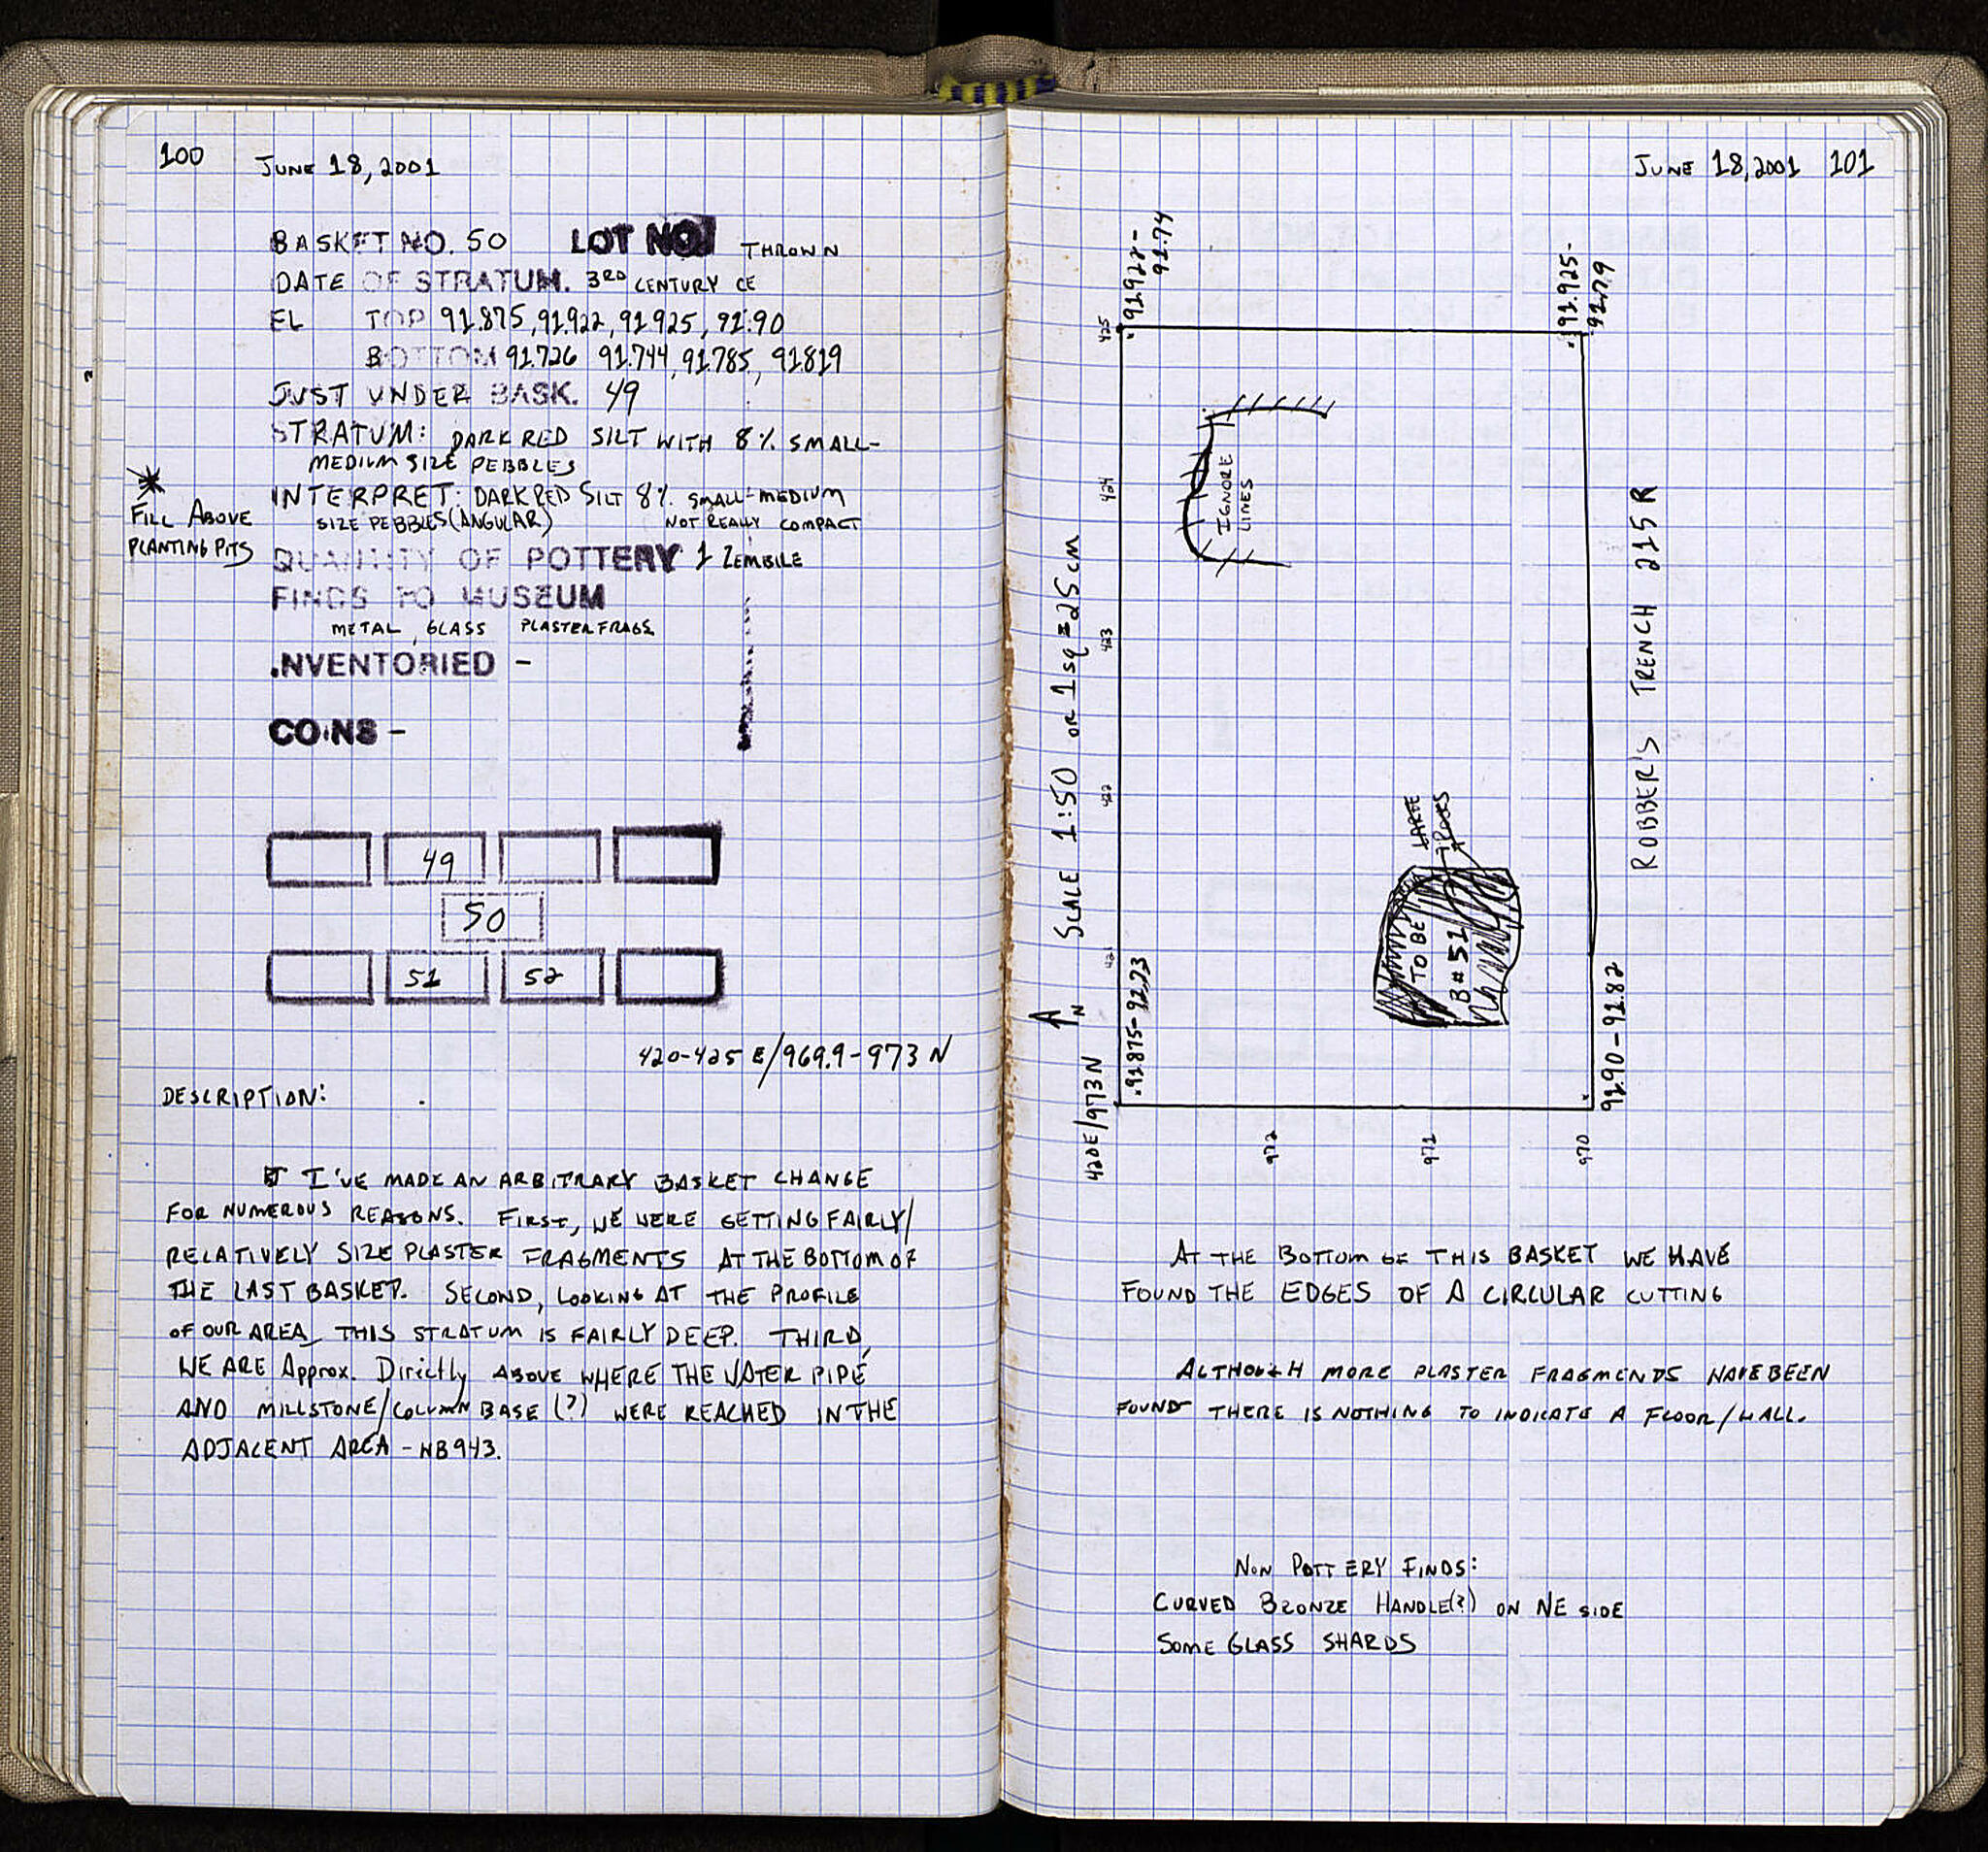 100 JUNE 18, 2001
BASKET NO. 50 LOT NO. THROWN
DATE OF STRATUM. 3RD CENTURY CE
EL TOP 91.875, 91.922, 91.925, 91.90
BOTTOM 91.726 91.744, 91.785, 91.819
JUST UNDER BASK. 49
STRATUM: DARK RED SILT WITH 8% SMALL-
MEDIUM SIZE PEBBLES
INTERPRET: DARK RED SILT 8% SMALL-MEDIUM
SIZE PEBBLES (ANGULAR) NOT REALLY COMPACT
FILL ABOVE
PLANTING PITS
QUANTITY OF POTTERY 1 ZEMBILE
FINDS TO MUSEUM
METAL, GLASS PLASTER FRAGS.
INVENTORIED -
COINS -
49
50
51 52
420-425 E/969.9-973 N
DESCRIPTION:
I'VE MADE AN ARBITRARY BASKET CHANGE
FOR NUMEROUS REASONS. FIRST, WE WERE GETTING FAIRLY/
RELATIVELY SIZE PLASTER FRAGMENTS AT THE BOTTOM OF
THE LAST BASKET. SECOND, LOOKING AT THE PROFILE
OF OUR AREA, THIS STRATUM IS FAIRLY DEEP. THIRD,
WE ARE Approx. Directly ABOVE WHERE THE WATER PIPE
AND MILLSTONE/COLUMN BASE (?) WERE REACHED IN THE
ADJACENT AREA - NB943.
JUNE 18, 2001 101
91.922-
91.74
91.925-
91.79
425
424
423
422
421
IGNORE
LINES
SCALE 1:50 OR 1 sq = 25 cm
ROBBER'S TRENCH 215R
TO BE
B# 51
N
91.875-
91.90-91.82
420E/973N
972
971
970
AT THE BOTTOM OF THIS BASKET WE HAVE
FOUND THE EDGES OF A CIRCULAR CUTTING
ALTHOUGH MORE PLASTER FRAGMENTS HAVE BEEN
FOUND THERE IS NOTHING TO INDICATE A FLOOR/WALL.
NON POTTERY FINDS:
CURVED BRONZE HANDLE(?) ON NE SIDE
SOME GLASS SHARDS